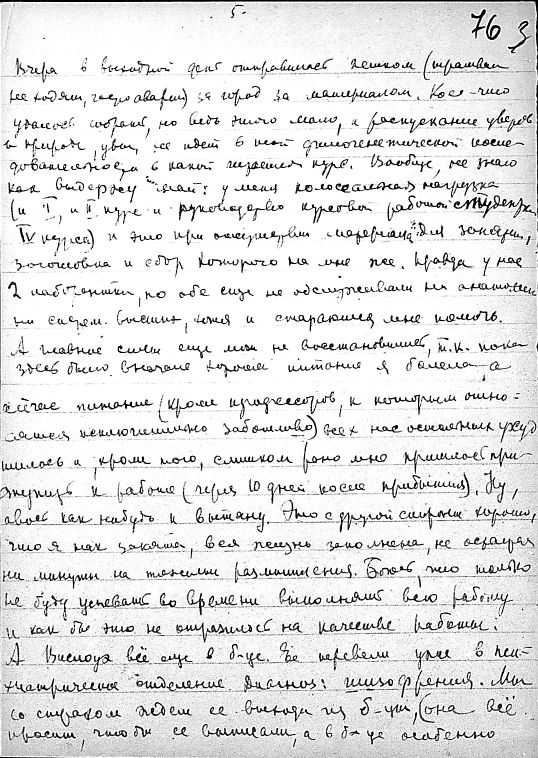 5.
76 3
Вчера в выходной день отправилась пешком (трамваи
не ходят, гидроавария) за город за материалом. Кое-что
удалось собрать, но ведь этого мало, и распускание цветов
в природе, увы, не идет в той филогенетической после-
довательности в какой читается курс. Вообще, не знаю
как выдержу май: у меня колоссальная нагрузка
(и I, и II курс и руководство курсовой работой студентки
IV курса) и это при отсутствии материала для занятий,
заготовка и сбор которого на мне же. Правда у нас
2 лаборантки, но обе еще не обслуживали ни анатомии
ни систем. высших, хотя и стараются мне помочь.
А главное силы еще мои не восстановились, т.к. пока
здесь было вначале хорошее питание я болела а
сейчас питание (кроме профессоров, к которым отно-
сятся исключительно заботливо) всех нас остальных ухуд
шилось и, кроме того, слишком рано мне пришлось при-
ступить к работе (через 10 дней после прибытия). Ну,
авось как нибудь и вытяну. Это с другой стороны хорошо,
что я так занята, вся жизнь заполнена, не остается
ни минуты на тяжелые размышления. Боюсь, что только
не буду успевать во время выполнять всю работу
и как бы это не отразилось на качестве работы.
А Вислоух всё еще в б-це. Ее перевели уже в пси-
хиатрическое отделение диагноз: шизофрения. Мы
со страхом ждем ее выхода из б-цы, (она всё
просит, чтобы ее выписали, а в б-це особенно